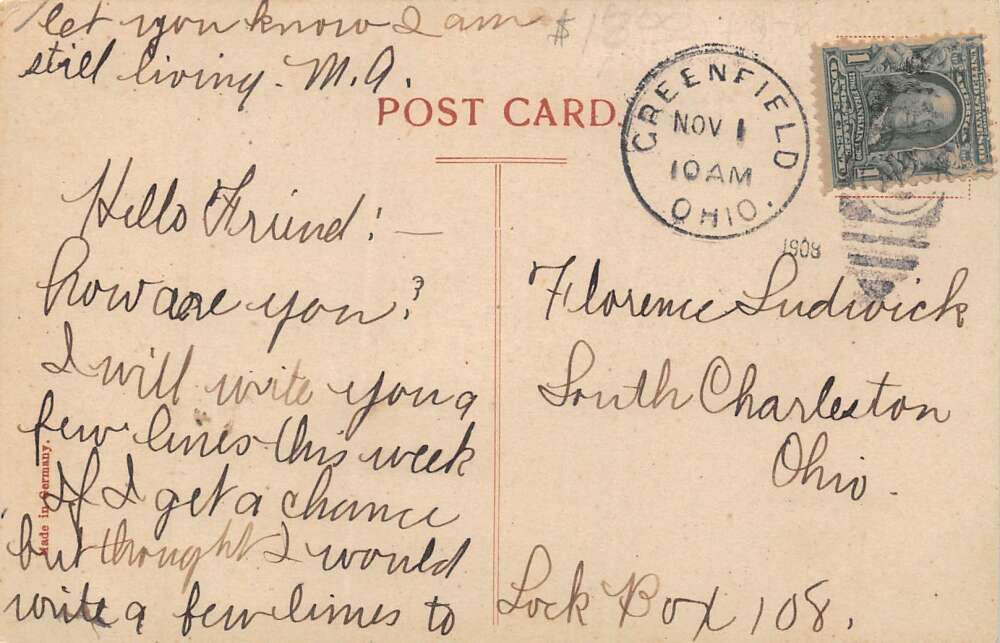 let you know I am
still living. M.A.
POST CARD.
GREENFIELD
NOV 1
10 AM
OHIO.
1908
1
1
Hello Friend! —
how are you?
I will write you a
few lines this week
If I get a chance
but thought I would
write a few lines to
Made in Germany.
Florence Ludwick
South Charleston
Ohio.
Lock Box 108.